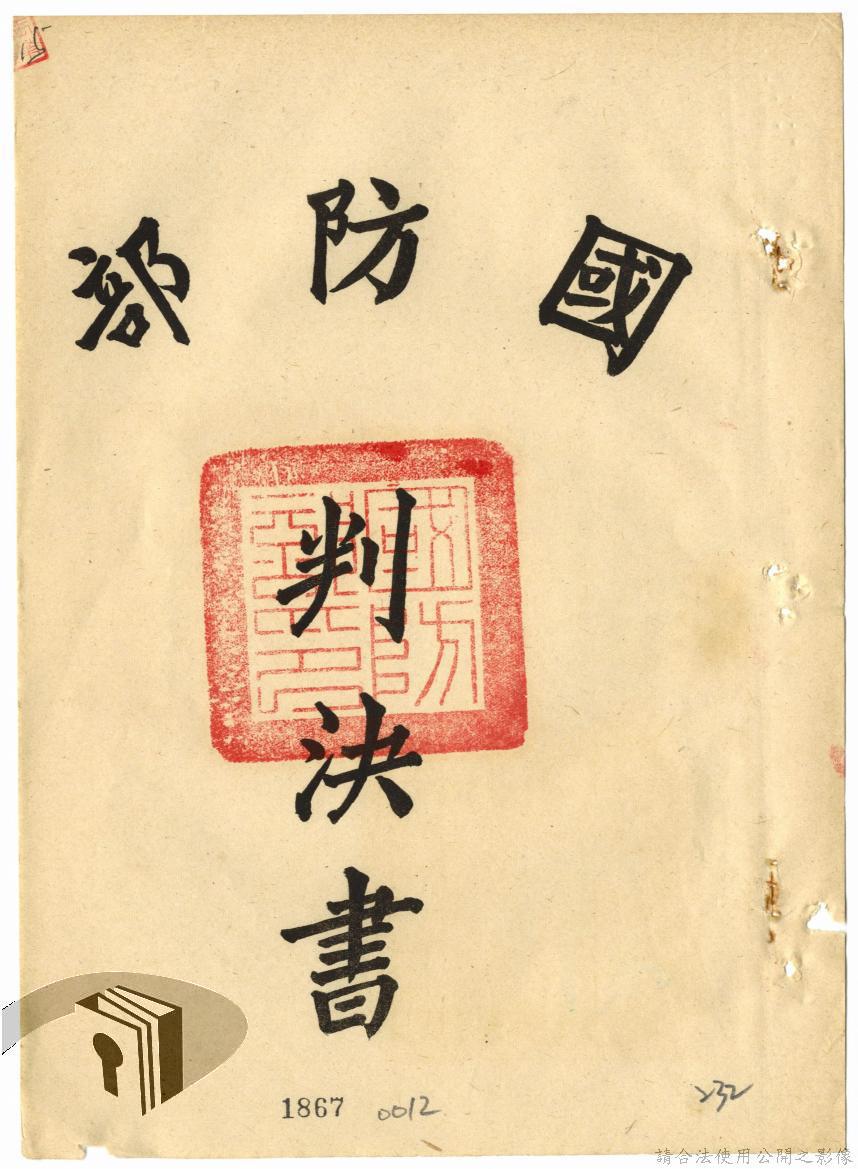 國防部
判決書
國防
1867
0012
232
請合法使用公開之影像